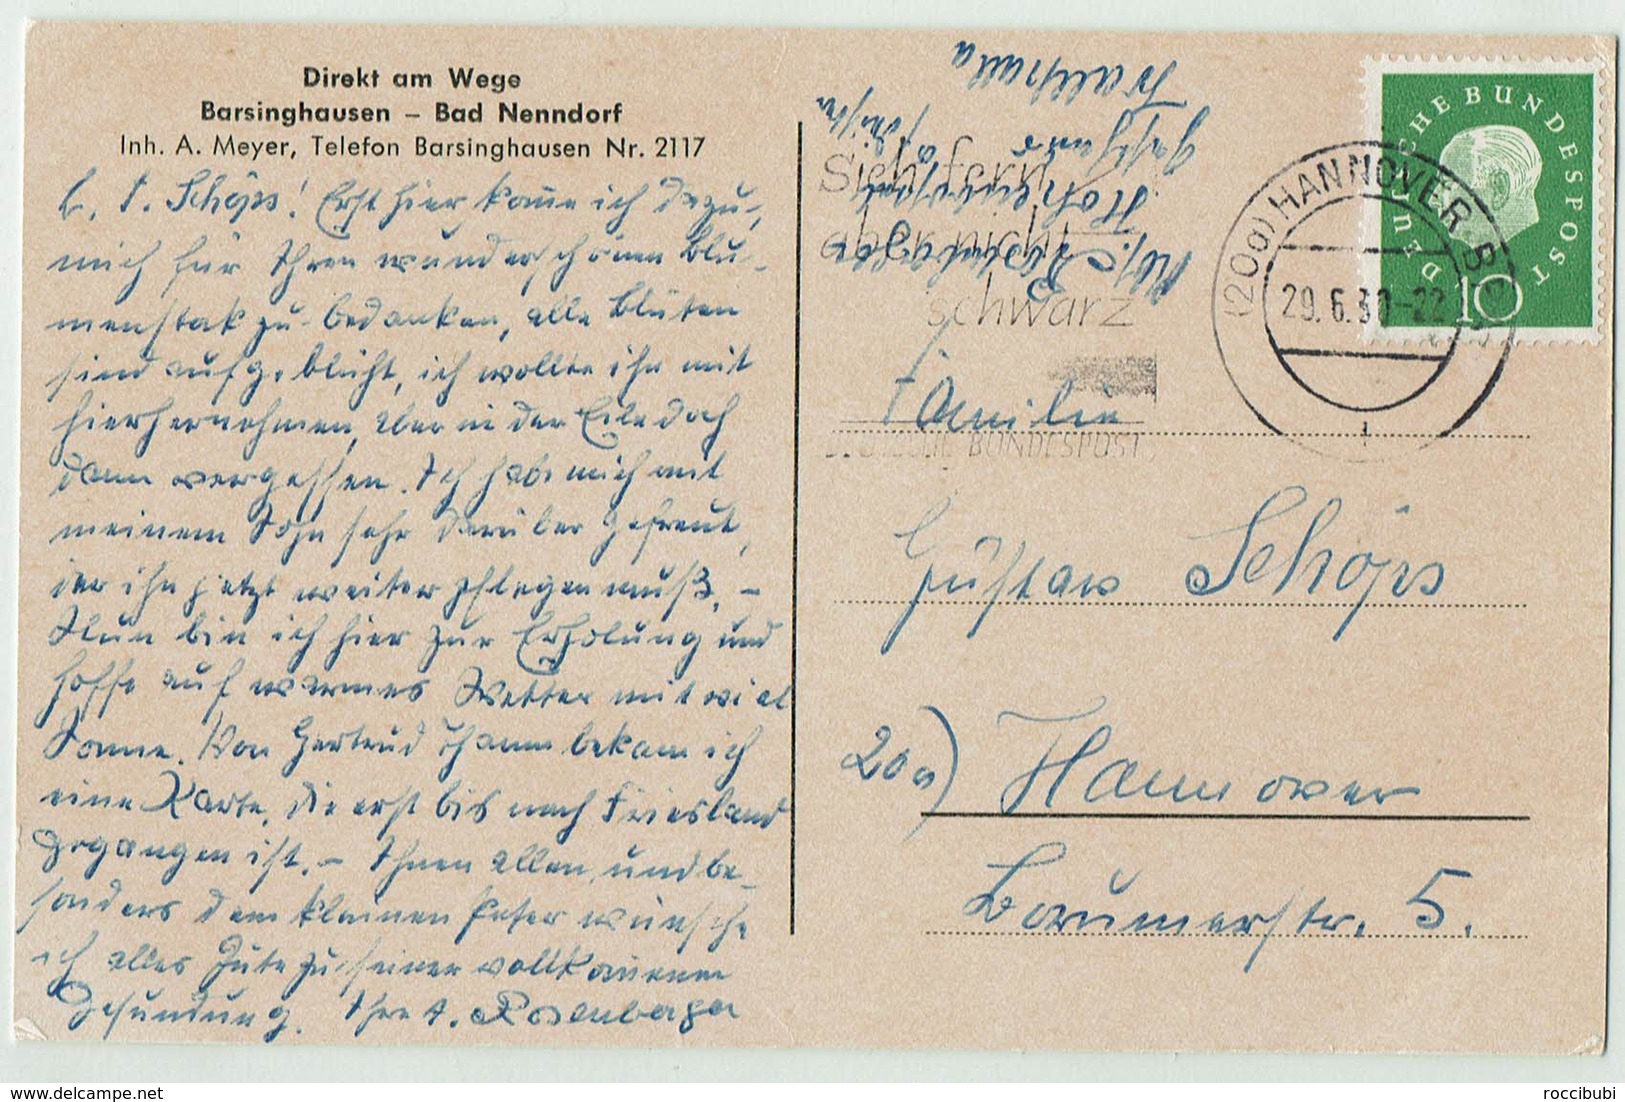 Direkt am Wege
Barsinghausen – Bad Nenndorf
Inh. A. Meyer, Telefon Barsinghausen Nr. 2117
L. F. Schöps! Erst hier komme ich dazu,
mich für Ihren wunderschönen Blu-
menstok zu bedanken, alle Blüten
sind aufgeblüht, ich wollte ihn mit
hierhernehmen, aber in der Eile doch
dann vergessen. Ich habe mich mit
meinem Sohn sehr darüber gefreut,
der ihn jetzt weiter pflegen muß. –
Nun bin ich hier zur Erholung und
hoffe auf warmes Wetter mit viel
Sonne. Von Gertrud Thamm bekam ich
eine Karte, die erst bis nach Friesland
gegangen ist. – Ihnen allen, und be-
sonders dem kleinen Peter wünsche
ich alles Gute zu seiner vollkommenen
Gesundung. Ihre A. Rosenberger
Abs.
schwarz
DEUTSCHE BUNDESPOST
10
(20a) HANNOVER
29.6.60-22
BUNDESPOST
Familie
Gustav Schöps
20a) Hannover
Baumerstr. 5.
roccibubi